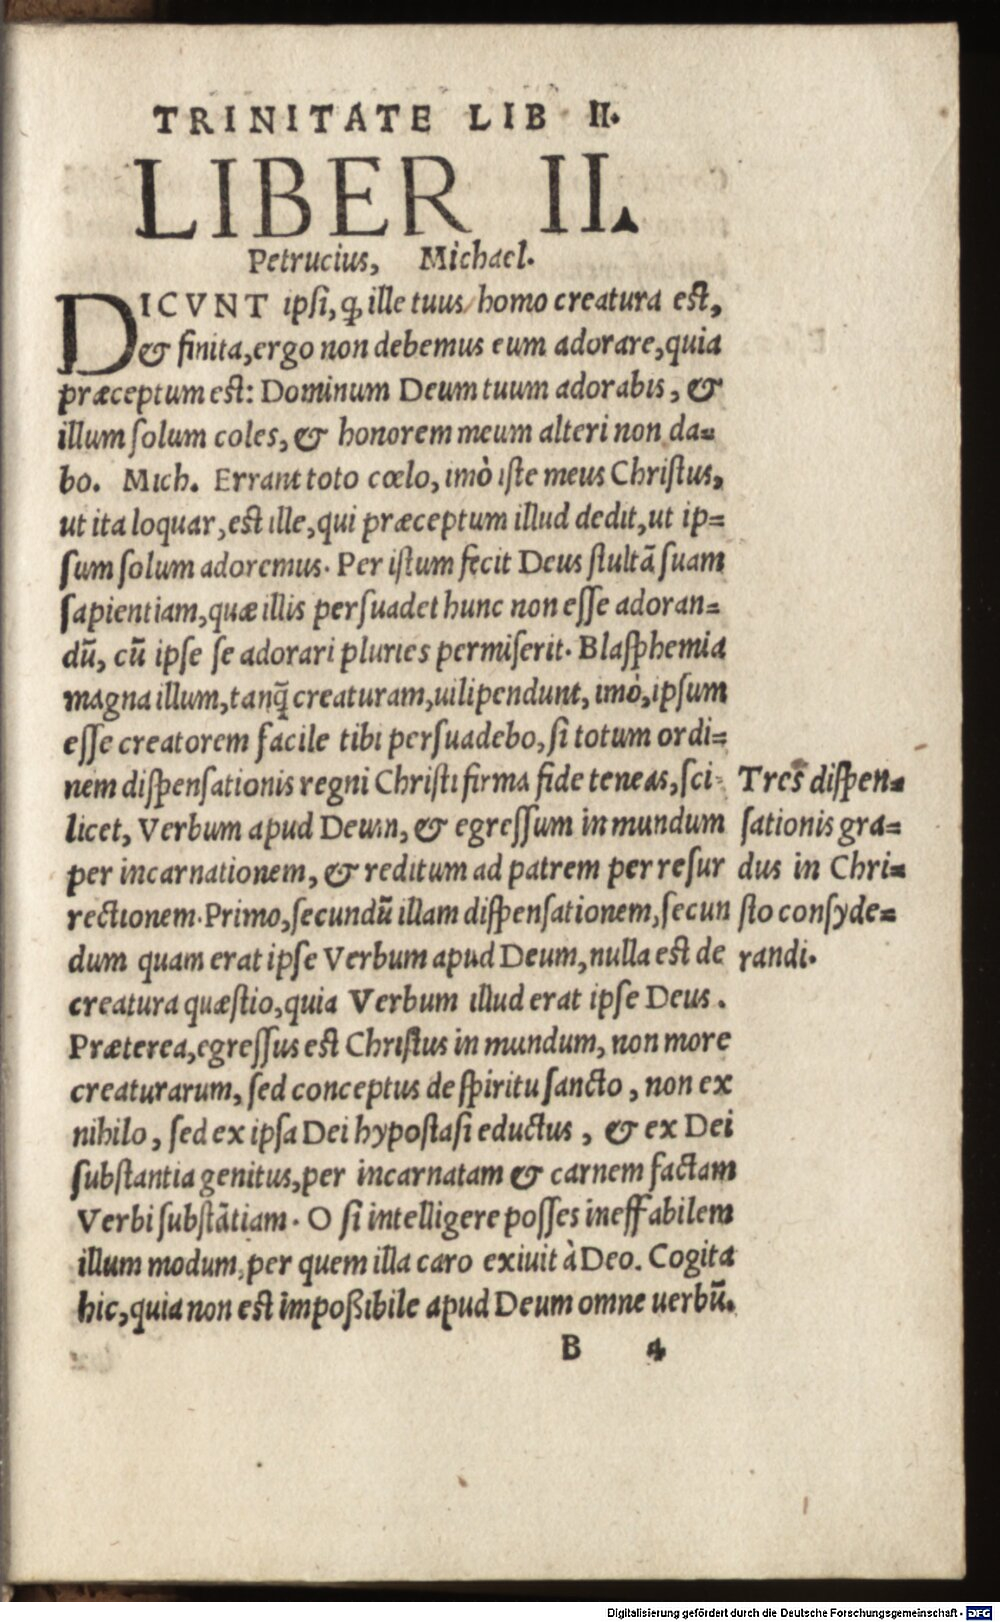 TRINITATE LIB II.
LIBER II.
Petrucius, Michael.
DICVNT ipsi, ꝙ ille tuus homo creatura est,
& finita, ergo non debemus eum adorare, quia
præceptum est: Dominum Deum tuum adorabis, &
illum solum coles, & honorem meum alteri non da=
bo. Mich. Errant toto cœlo, imò iste meus Christus,
ut ita loquar, est ille, qui præceptum illud dedit, ut ip=
sum solum adoremus. Per istum fecit Deus stultā suam
sapientiam, quæ illis persuadet hunc non esse adoran=
dū, cū ipse se adorari pluries permiserit. Blasphemia
magna illum, tanq̃ creaturam, uilipendunt, imò, ipsum
esse creatorem facile tibi persuadebo, si totum ordi=
nem dispensationis regni Christi firma fide teneas, sci-
licet, Verbum apud Deum, & egressum in mundum
per incarnationem, & reditum ad patrem per resur
rectionem. Primo, secundū illam dispensationem, secun
dum quam erat ipse Verbum apud Deum, nulla est de
creatura quæstio, quia Verbum illud erat ipse Deus.
Præterea, egressus est Christus in mundum, non more
creaturarum, sed conceptus de spiritu sancto, non ex
nihilo, sed ex ipsa Dei hypostasi eductus, & ex Dei
substantia genitus, per incarnatam & carnem factam
Verbi substātiam. O si intelligere posses ineffabilem
illum modum, per quem illa caro exiuit à Deo. Cogita
hic, quia non est impoßibile apud Deum omne uerbū.
Tres dispen=
sationis gra=
dus in Chri=
sto consyde=
randi.
B 4
Digitalisierung gefördert durch die Deutsche Forschungsgemeinschaft - DFG